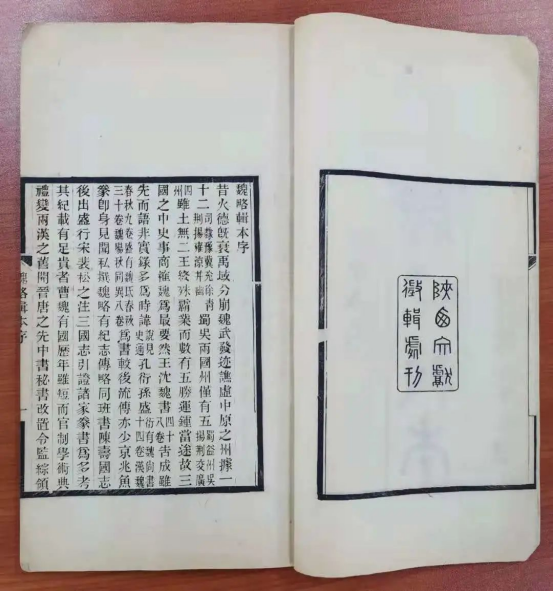 陝西文獻
徵輯處刊
魏略輯本序
昔火德旣衰禹域分崩魏武發迹譙虖中原之州據一
十二司隸豫冀兖徐靑荆揚雍涼幷幽蜀吳兩國州僅有五蜀益州吳揚荆交廣
四州雖土無二王統殊霸業而數有五勝運鍾當途故三
國之中史事商榷魏爲最要然王沈魏書四十八卷告成雖
先而語非實錄多爲時諱說見史通孔衍孫盛衍有魏尚書十四卷漢魏
春秋九卷盛有魏氏春秋三十卷魏陽秋同異八卷爲書較後流傳亦少京兆魚
豢卽身見聞私撰魏略有紀志傳略同班書陳壽國志
後出盛行宋裴松之注三國志引證諸家豢書爲多考
其紀載有足貴者曹魏有國歷年雖短而官制學術典
禮變兩漢之舊開晉唐之先中書秘書改置令監綜領
魏略輯本序 一